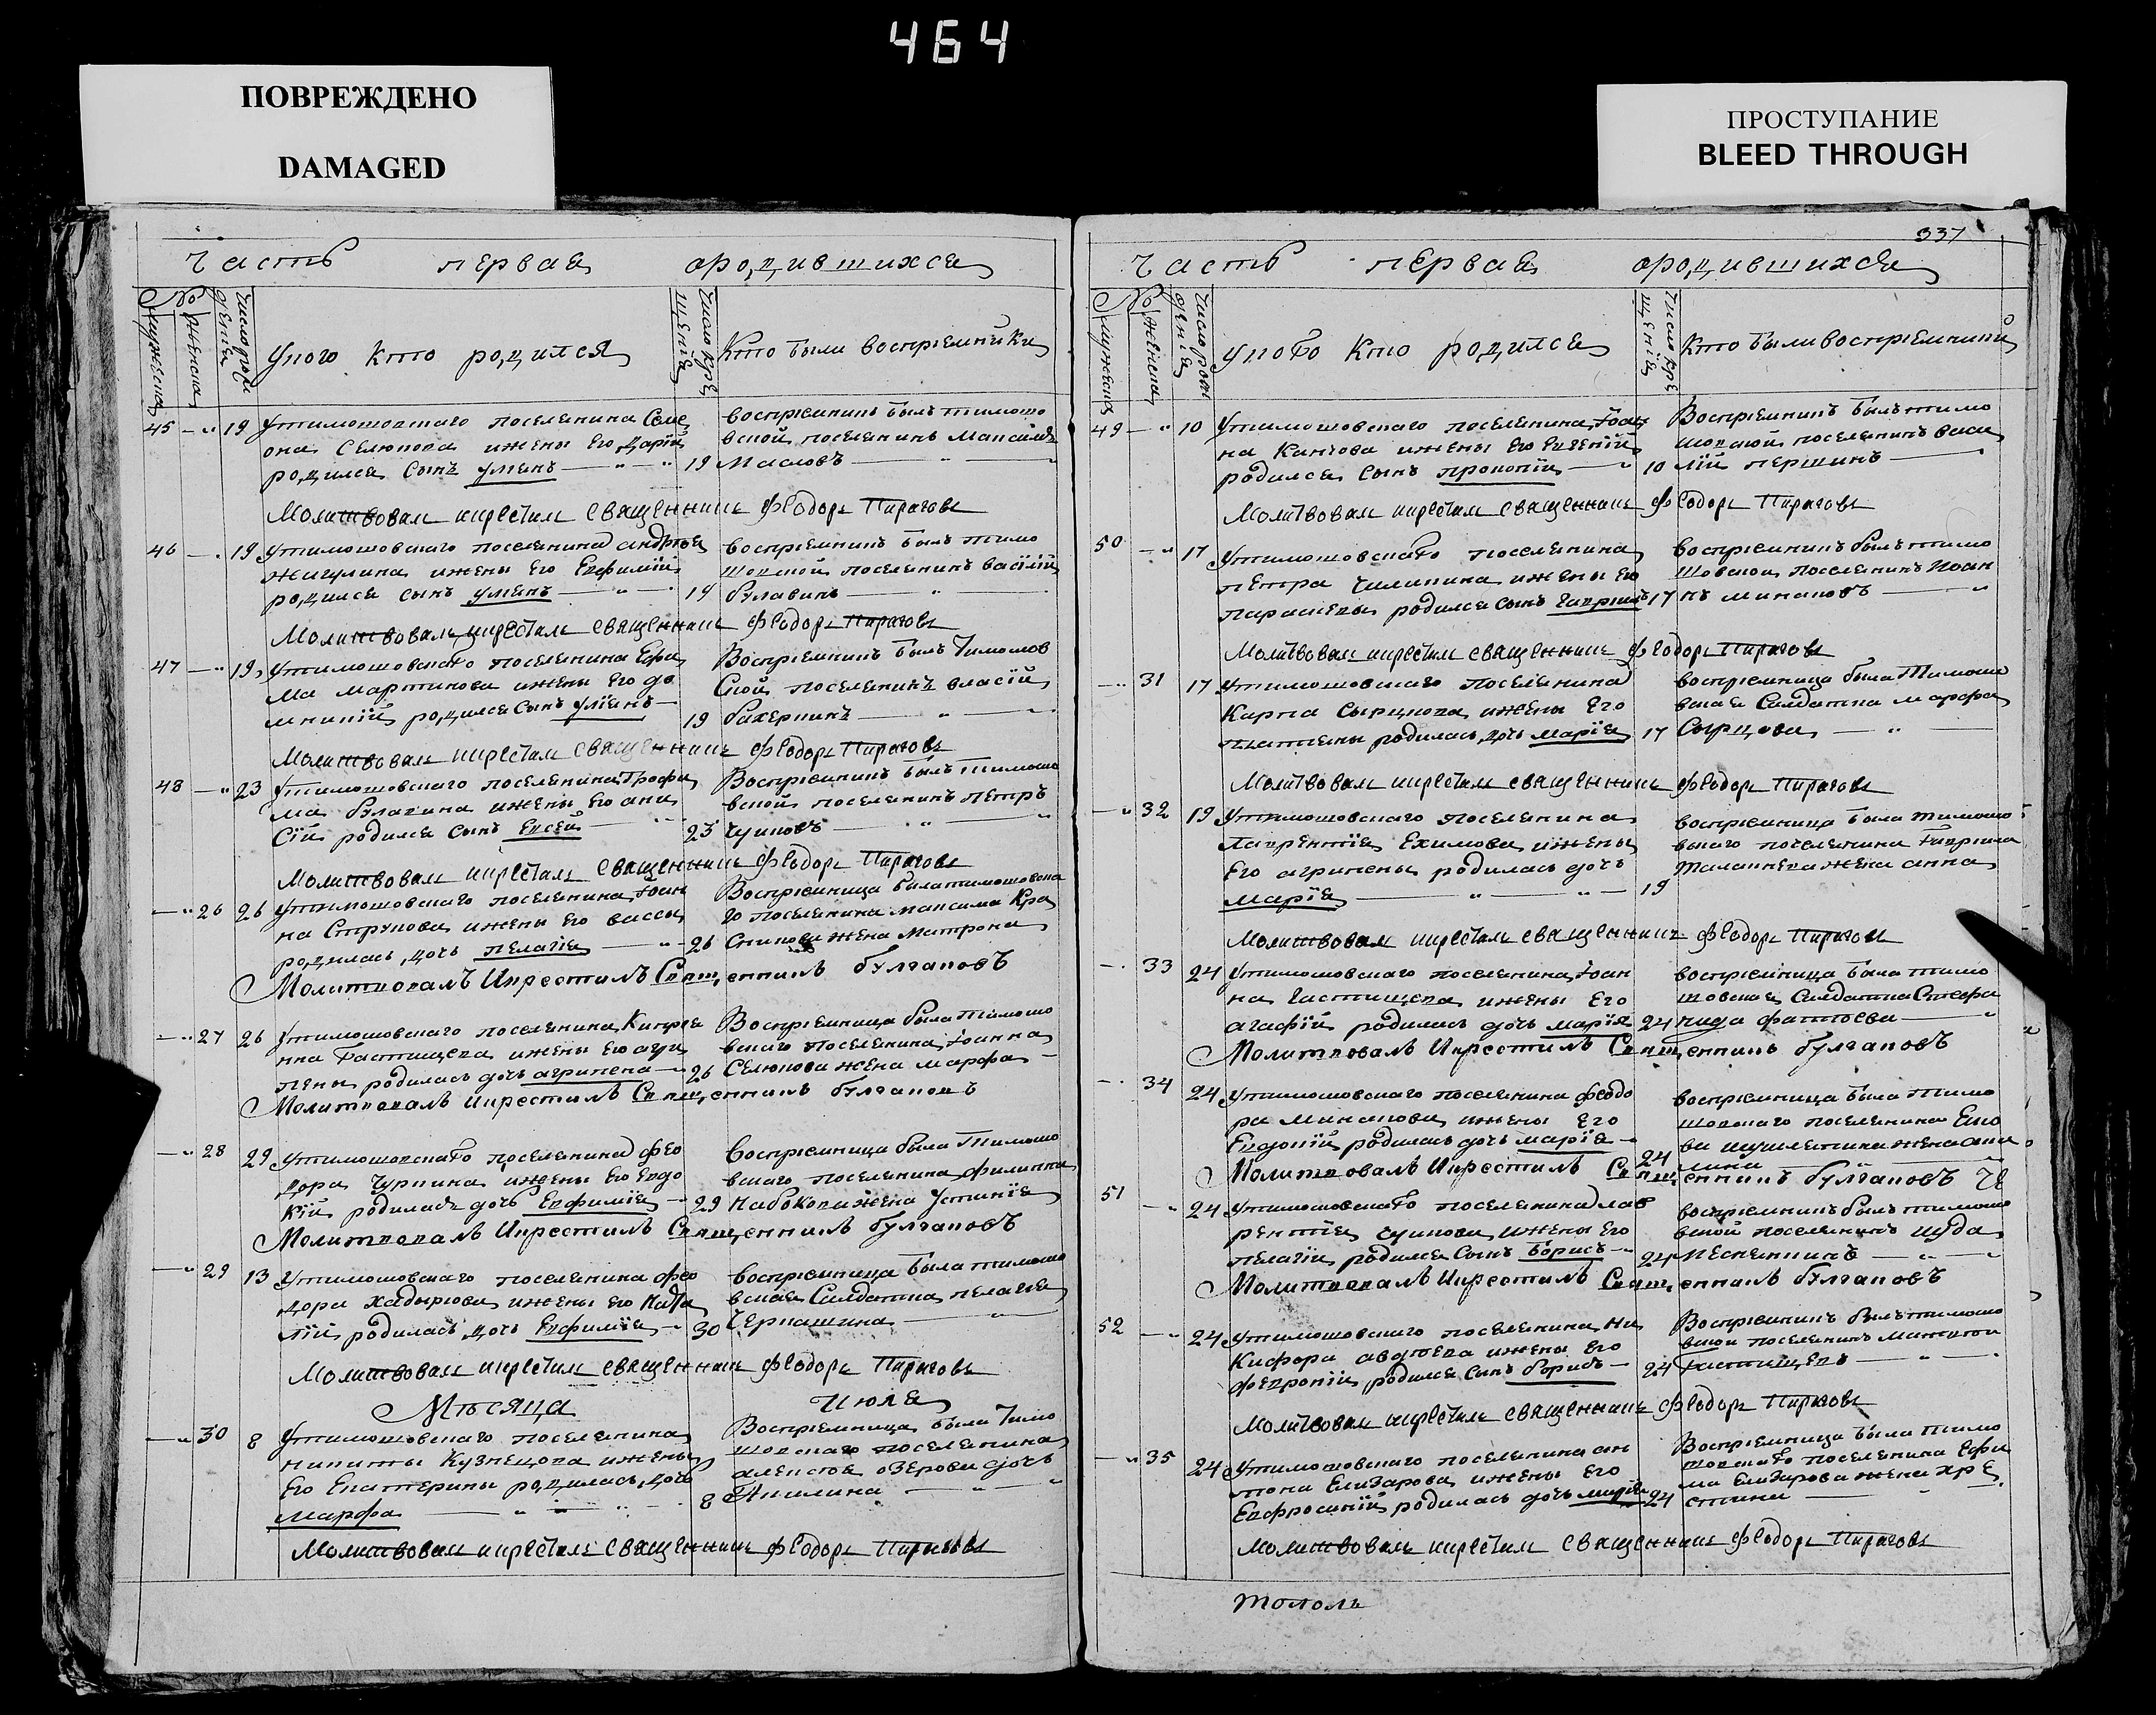 464
ПОВРЕЖДЕНО
DAMAGED
ПРОСТУПАНИЕ
BLEED THROUGH
Часть первая ородившихся
№
мужеска
женска
число рож
дения
Укого кто родился
число кре
щения
Кто были восприемники
45 19 Утимошовского поселенина Семе
она Селюкова ижены Его Дарїи
родился сынъ Улиянъ 19
восприемникъ былъ тимошо
вской поселенинъ Максимъ
Масловъ
Молитвовалъ икрестилъ священникъ Феодоръ Пироговъ
46 19 Утимошовского поселенина андрея
Жигулина ижены Его Евфимїи
родился сынъ Улиянъ 19
восприемникъ былъ тимо
шовской поселенинъ василїй
Булавинъ
Молитвовалъ икрестилъ священникъ Феодоръ Пироговъ
47 19 Утимошовского поселенина Ефи
ма Мартинова ижены Его до
мникїи родился сынъ Улиянъ 19
Восприемникъ былъ Тимошов
ской поселенинъ власїй
Молитвовалъ икрестилъ священникъ Феодоръ Пироговъ
48 23 Утимошовского поселенина Трофи
ма Булавина ижены Его ани
сїи родился сынъ Евсей 23
Восприемникъ былъ тимошо
вской поселенинъ петръ
Чуиковъ
Молитвовалъ икрестилъ священникъ Феодоръ Пироговъ
26 26 Утимошовского поселенина Іоан
на Струкова ижены Его вассы
родилась дочь пелагїя 26
Восприемница была тимошовска
го поселенина максима Кра
сникова жена Матрона
Молитвовалъ Икрестилъ Священникъ булгаковъ
27 26 Утимошовского поселенина Кипрїя
на Растищева ижены Его агри
пены родилась дочь агрипена 26
Восприемница была тимошо
вского поселенина Іоанна
Селюкова жена марфа
Молитвовалъ Икрестилъ Священникъ булгаковъ
28 29 Утимошовского поселенина фео
дора Чурпина ижены Его Евдо
кїи родилась дочь Евфимїя 29
восприемница была тимошо
вского поселенина филиппа
Набокова жена Устинїя
Молитвовалъ Икрестилъ Священникъ булгаковъ
29 13 Утимошовского поселенина фео
дора Хадырюва ижены Его Ната
лїи родилась дочь Евфимїя 30
восприемница была тимошо
вская Салдатка пелагея
Черкашина
Молитвовалъ икрестилъ священникъ Феодоръ Пироговъ
Месяца Июля
30 8 Утимошовского поселенина
никиты Кузнецова ижены
Его Екатерины родилась дочь
Марфа 8
Восприемница была Тимо
шовского поселенина
алексея озерова дочь
Акилина
Молитвовалъ икрестилъ священникъ Феодоръ Пироговъ
337
Часть первая ородившихся
№
мужеска
женска
число рож
дения
Укого кто родился
число кре
щения
Кто были восприемники
49 10 Утимошовского поселенина Іоан
на Канчова ижены Его Евгенїи
родился сынъ прокопїй 10
Восприемникъ былъ тимо
шовской поселенинъ васи
лїй першинъ
Молитвовалъ икрестилъ священникъ Феодоръ Пироговъ
50 17 Утимошовского поселенина
петра Чилипина ижены Его
параскевы родился сынъ Гаврїилъ 17
восприемникъ былъ тимо
шовской поселенинъ Иоан
нъ минаковъ
Молитвовалъ икрестилъ священникъ Феодоръ Пироговъ
31 17 Утимошовского поселенина
Карпа Сырцова ижены Его
татьяны родилась дочь марїя 17
восприемница была Тимошо
вская Салдатка марфа
Сырцова
Молитвовалъ икрестилъ священникъ Феодоръ Пироговъ
32 19 Утимошовского поселенина
Лаврентїя Екимова ижены
Его агрипены родилась дочь
Марїя 19
восприемница была тимошо
вского поселенина Гаврила
жена анна
Молитвовалъ икрестилъ священникъ Феодоръ Пироговъ
33 24 Утимошовского поселенина Іоан
на Растищева ижены Его
агафїи родилась дочь марїя 24
восприемница была тимо
шовская Салдатка Стефа
нида фатеева
Молитвовалъ Икрестилъ Священникъ булгаковъ
34 24 Утимошовского поселенина феодо
ра Минакова ижены Его
Евдокїи родилась дочь марїя 24
восприемница была тимо
шовского поселенина
Молитвовалъ Икрестилъ Священникъ булгаковъ
51 24 Утимошовского поселенина лав
рентїя чуикова ижены Его
пелагїи родился сынъ борисъ 24
восприемникъ былъ тимошо
вской поселенинъ иуда
Молитвовалъ Икрестилъ Священникъ булгаковъ
52 24 Утимошовского поселенина Ни
кифора авдеева ижены Его
февронїи родился сынъ борисъ 24
Восприемникъ былъ тимошо
вской поселенинъ
Растищевъ
Молитвовалъ икрестилъ священникъ Феодоръ Пироговъ
35 24 Утимошовского поселенина ан
тона Елизарова ижены Его
Евфросинїи родилась дочь марїя 24
Восприемница была тимо
шовского поселенина Ефи
ма Елизарова жена хре
стина
Молитвовалъ икрестилъ священникъ Феодоръ Пироговъ